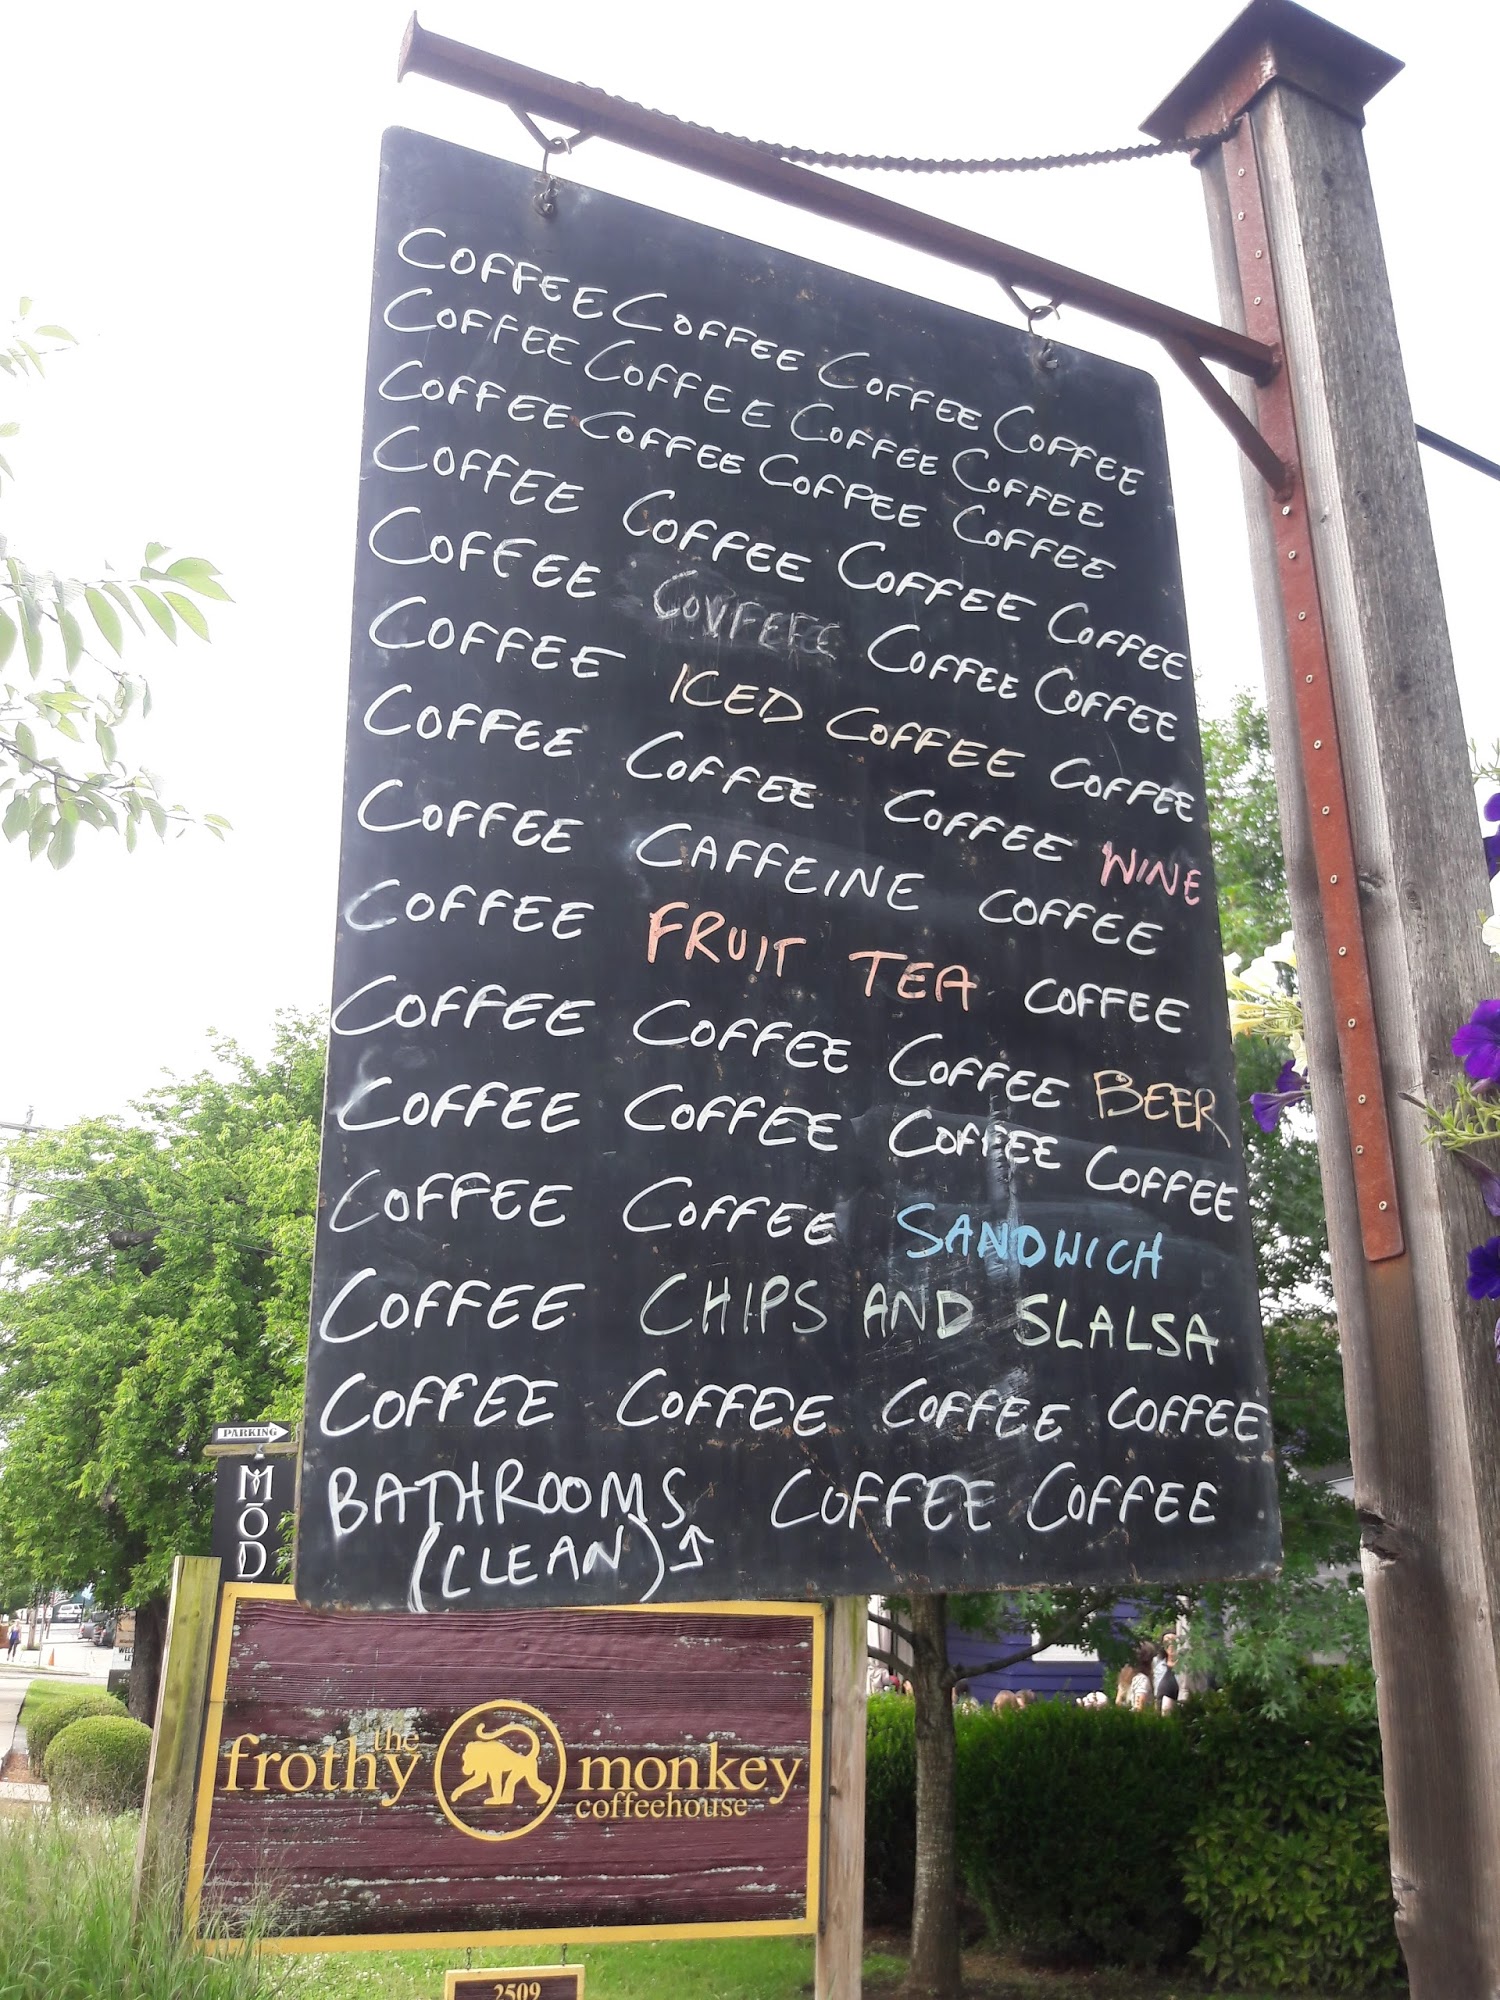 COFFEE COFFEE COFFEE COFFEE
COFFEE COFFEE COFFEE COFFEE
COFFEE COFFEE COFFEE COFFEE
COFFEE COFFEE COFFEE COFFEE
COFFEE COVFEFE COFFEE COFFEE
COFFEE ICED COFFEE COFFEE
COFFEE COFFEE COFFEE WINE
COFFEE CAFFEINE COFFEE
COFFEE FRUIT TEA COFFEE
COFFEE COFFEE COFFEE BEER
COFFEE COFFEE COFFEE COFFEE
COFFEE COFFEE SANDWICH
COFFEE CHIPS AND SLALSA
COFFEE COFFEE COFFEE COFFEE
BATHROOMS COFFEE COFFEE
(CLEAN)
PARKING
MOD
the frothy monkey
coffeehouse
2509